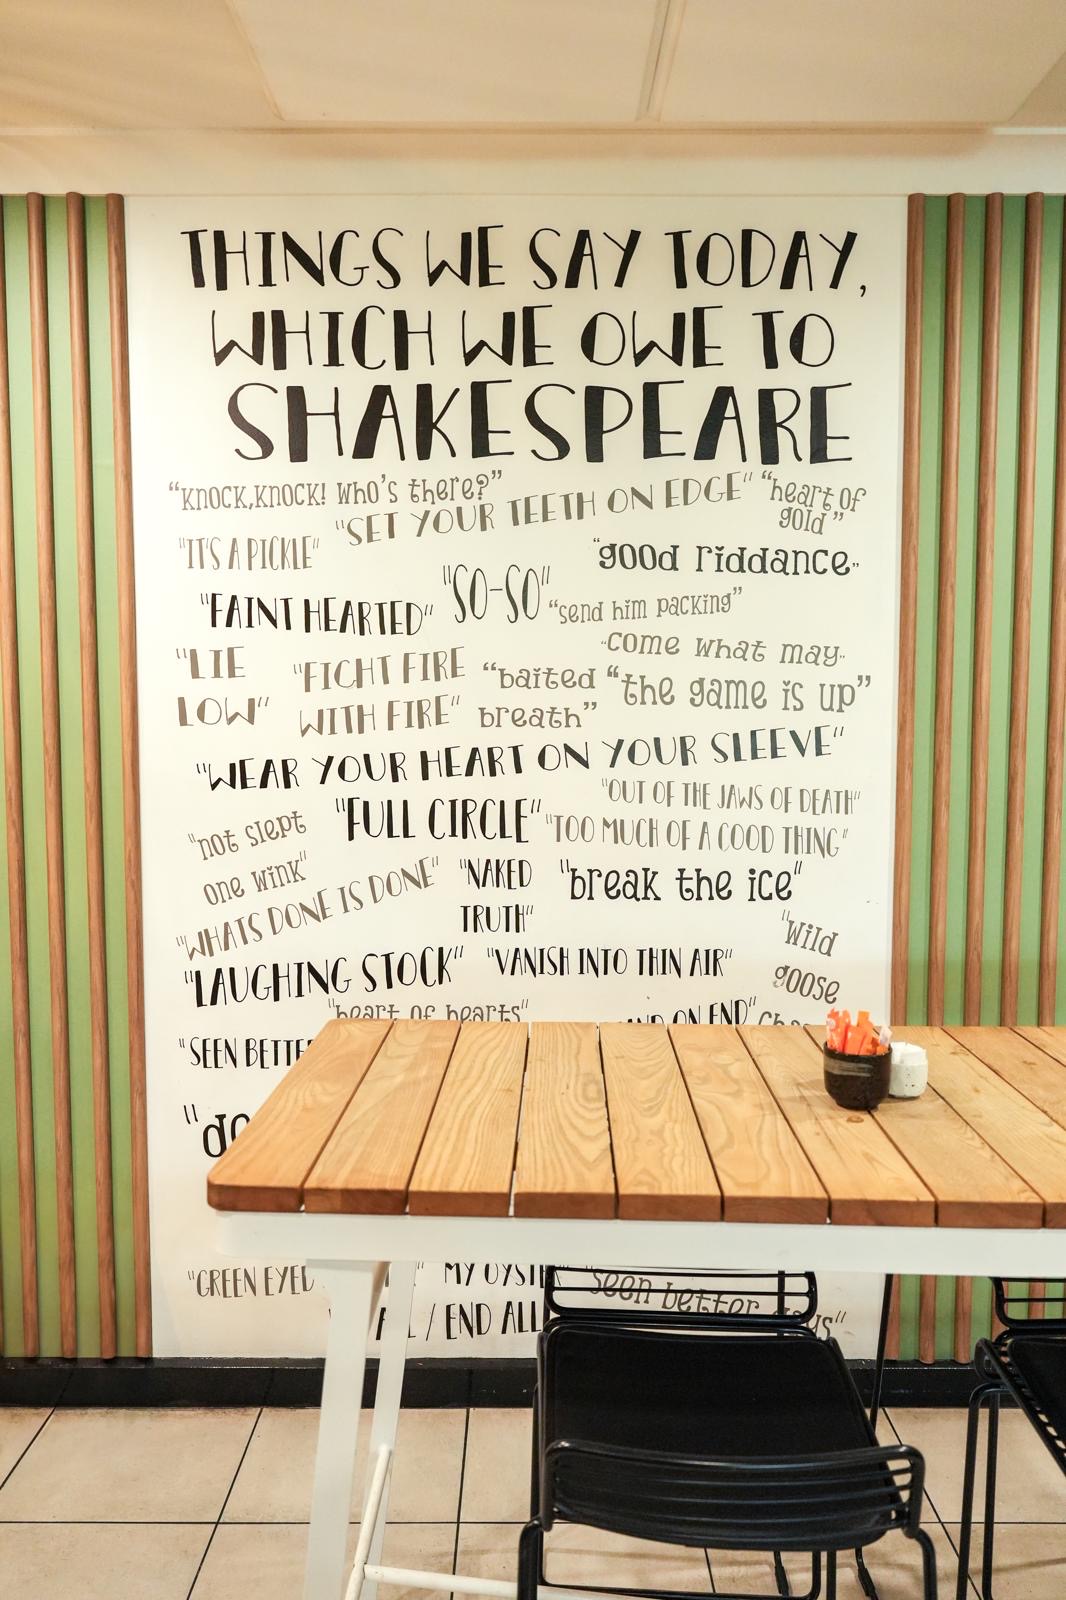 THINGS WE SAY TODAY,
WHICH WE OWE TO
SHAKESPEARE
"knock,knock! who's there?"
"SET YOUR TEETH ON EDGE"
"heart of
gold"
"IT'S A PICKLE"
"good riddance"
"SO-SO"
"FAINT HEARTED"
"send him packing"
"come what may"
"LIE
LOW"
"FIGHT FIRE
WITH FIRE"
"baited
breath"
"the game is up"
"WEAR YOUR HEART ON YOUR SLEEVE"
"OUT OF THE JAWS OF DEATH"
"FULL CIRCLE"
"TOO MUCH OF A GOOD THING"
"not slept
one wink"
"WHATS DONE IS DONE"
"NAKED
TRUTH"
"break the ice"
"Wild
goose
"LAUGHING STOCK"
"VANISH INTO THIN AIR"
"heart of hearts"
ON END"
"SEEN
"GREEN EYED
MY OYSTER"
"seen better days"
/ END ALL